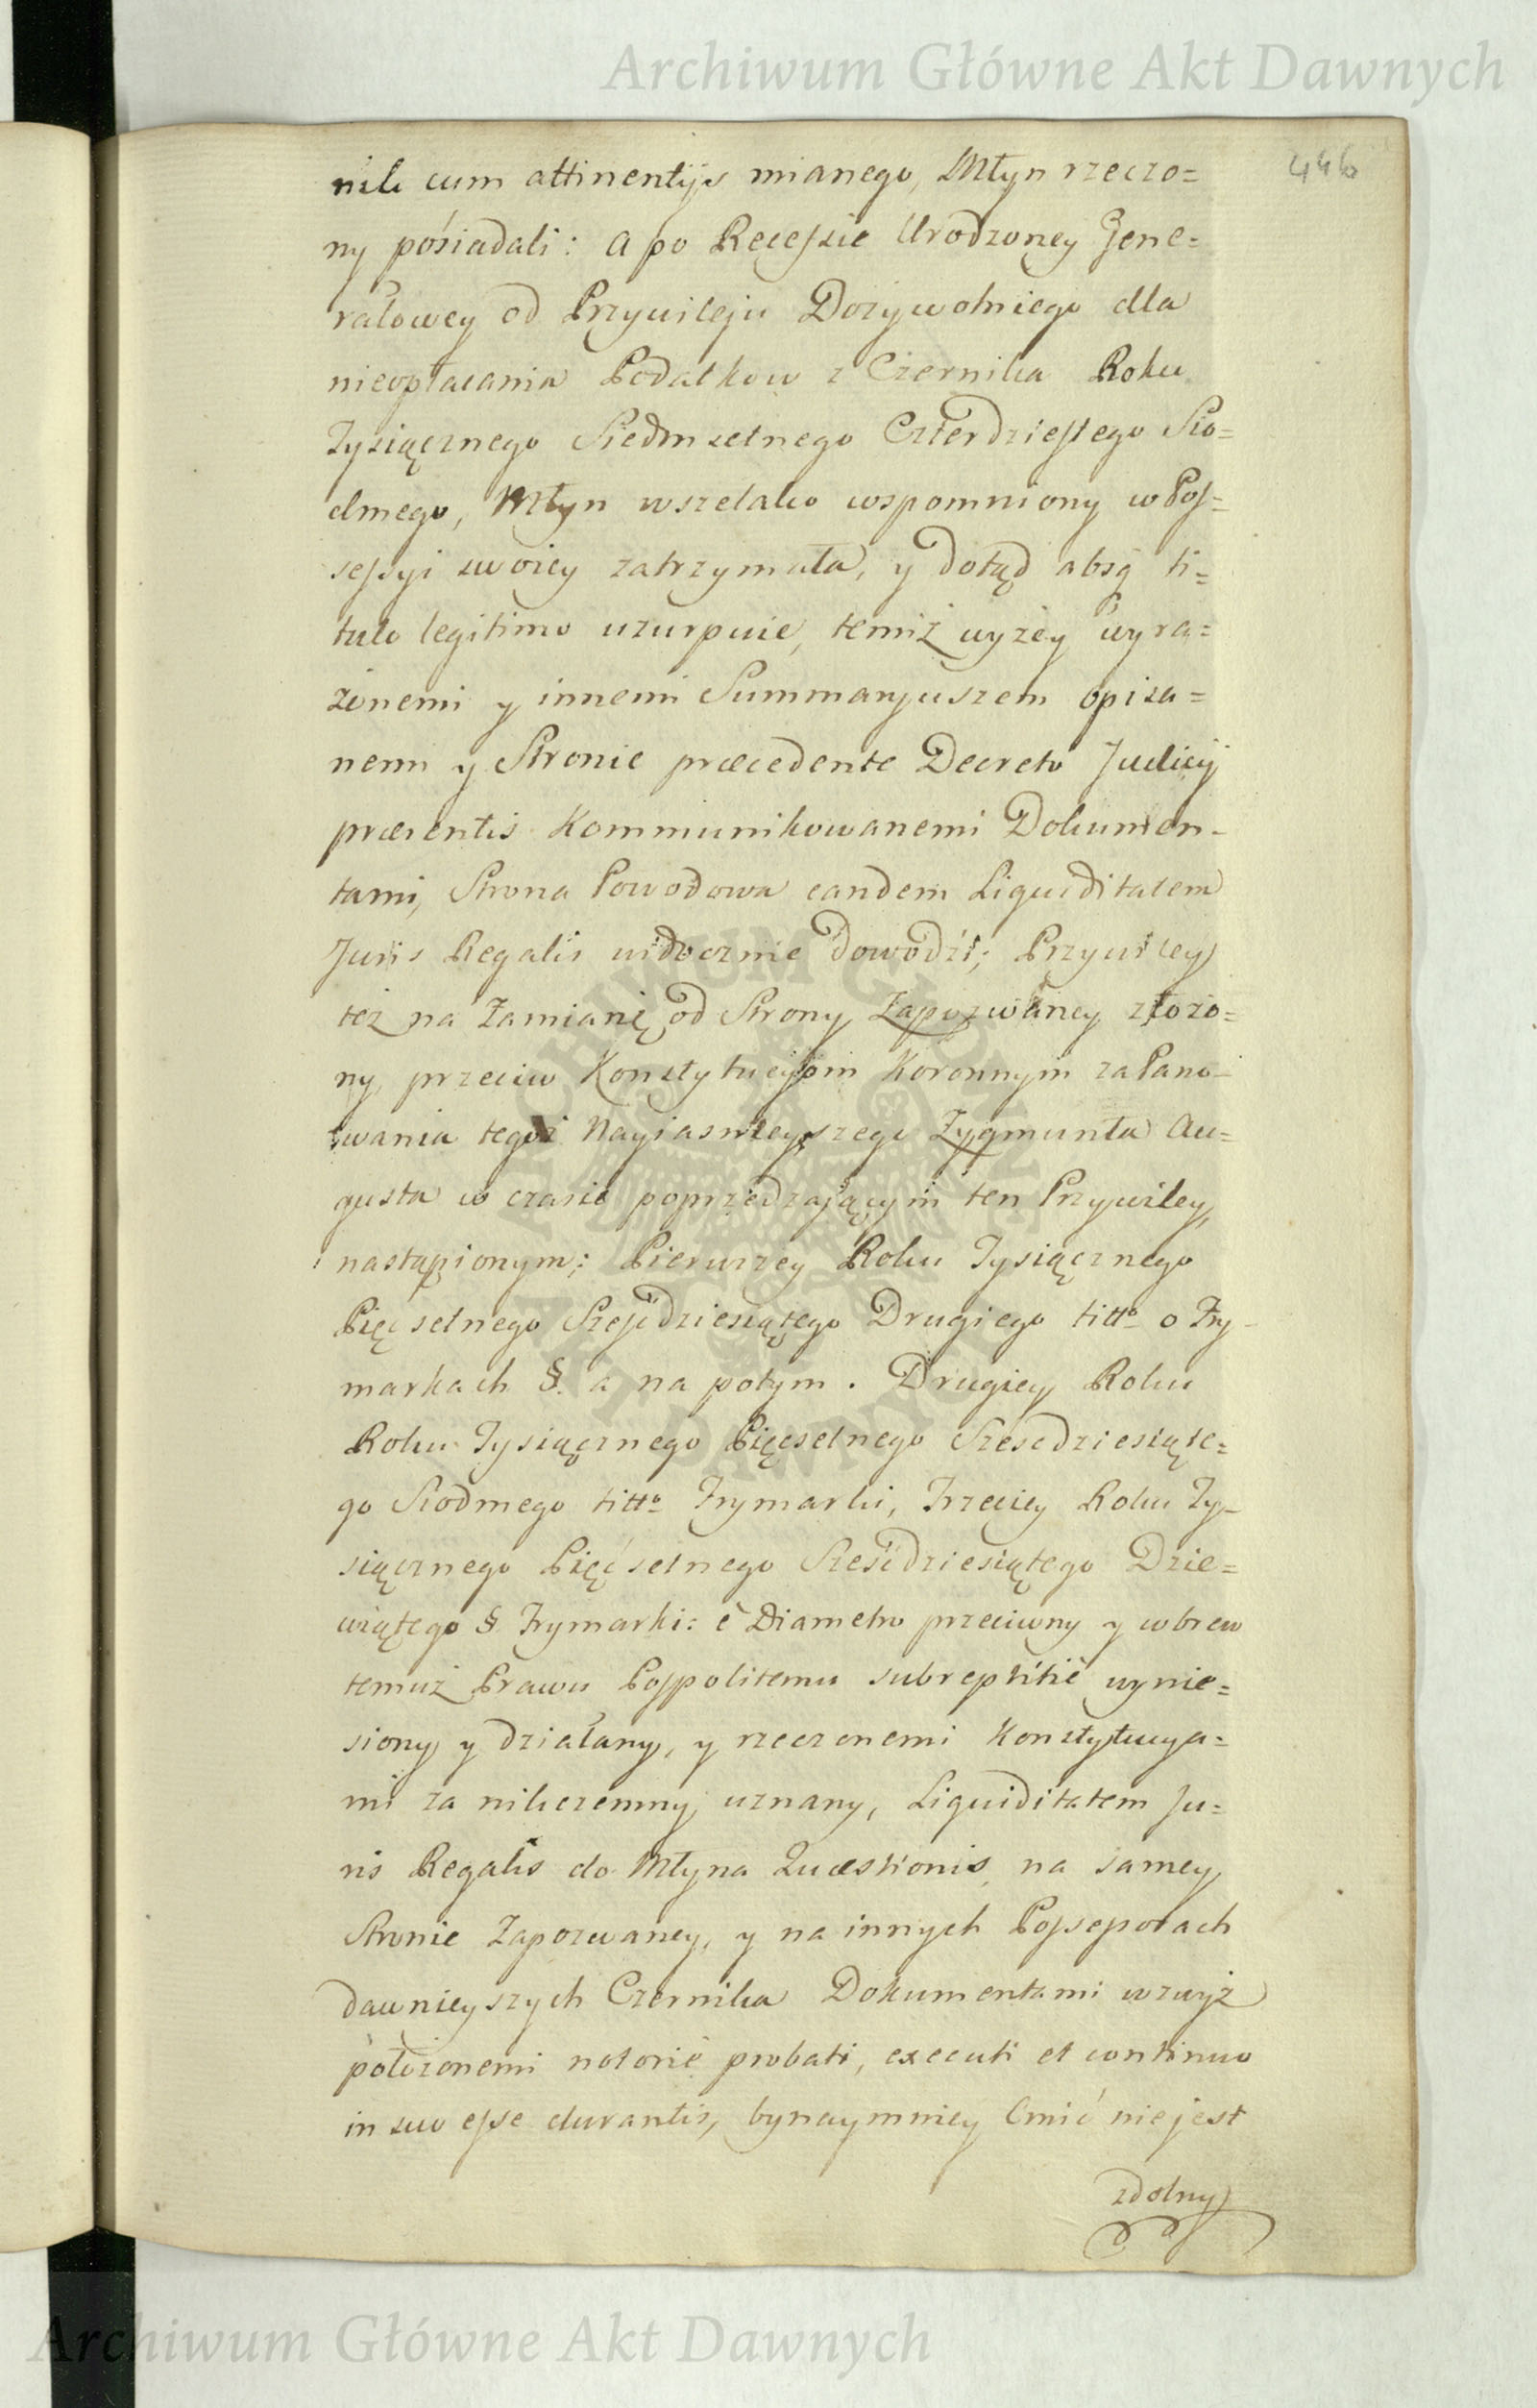 Archiwum Główne Akt Dawnych
446
nik cum attinentijs mianego, Młyn rzeczo=
ny posiadali: a po Recessie Urodzoney Gene=
rałowey od Przywileju Dożywotniego dla
nieopłacania Podatkow z Czernika Roku
Tysiącznego Siedmsetnego Czterdziestego Sio=
dmego, Młyn wszelako wspomniony w Pos=
sessyi swoiey zatrzymała, y dotąd absq ti=
tulo legitimo uzurpuie, temiż wyżey wyra=
żonemi y innemi Summaryuszem opisa=
nemi y Stronie præcedente Decreto Judicij
præsentis Kommunikowanemi Dokumen-
tami, Strona Powodowa eandem Liquiditatem
Juris Regalis widocznie dowodzi; Przywiley
też na Zamianę od Strony Zapozwaney złożo=
ny, przeciw Konstytucyjom Koronnym za Pano-
wania tegoż Nayiasnieyszego Zygmunta Au=
gusta w czasie poprzedzającym ten Przywiley,
nastąpionym; Pierwszey Roku Tysiącznego
Pięćsetnego Sześćdziesiątego Drugiego titto o Fry-
markach §. a na potym. Drugiey Roku
Roku Tysiącznego Pięcsetnego Szescdziesiąte=
go Siodmego titto Frymarki, Trzeciey Roku Ty-
siącznego Pięćsetnego Sześćdziesiątego Dzie=
wiątego § Frymarki: è Diametro przeciwny y wbrew
temuż Prawu Pospolitemu subreptitiè wynie=
siony y działany, y rzeczonemi Konstytucya=
mi za nikczemny uznany, Liquiditatem Ju=
ris Regalis do Młyna Quæstionis na samey
Stronie Zapozwaney, y na innych Possessorach
dawnieyszych Czernika Dokumentami wzwyż
położonemi notoriè probati, executi et continuo
in suo esse durantis, bynaymniey Cmić nie jest
zdolny
Archiwum Główne Akt Dawnych